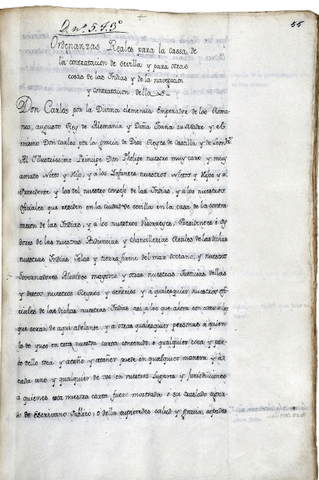 55
Ordenanzas Reales para la Cassa de
la contratacion de Sevilla y para otras
cosas de las Indias y de la navegacion
y contratacion della
Don Carlos por la Divina clemencia Emperador de los Roma-
nos, augusto Rey de Alemania y Doña Joana su Madre y el
mismo Don Carlos por la gracia de Dios Reyes de Castilla y de Leon
Al Illustrissimo Principe Don Phelipe nuestro muy caro y muy
amado nieto y hijo, y a los Infantes nuestros nietos y hijos y al
Presidente y los del nuestro consejo de las Indias, y a los nuestros
officiales que residen en la ciudad de sevilla en la casa de la contra-
tacion de las Indias, y a los nuestros Visorreyes, Presidentes e oy-
dores de las nuestras Audiencias y Chancillerias Reales de las dichas
nuestras Indias Islas y tierra firme del mar oceano, y nuestros
Governadores Alcaldes mayores y otras nuestras Justicias dellas
y otros nuestros Reynos y señorios y a qualesquier nuestros offi-
ciales de las dichas nuestras Indias assi a los que aora son como a los
que seran de aqui adelante, y a otras qualesquier personas a quien
lo de yuso en esta nuestra carta contenido e qualquier cosa y par-
te dello toca y atañe y atañer puede en qualquier manera y a
cada uno y qualquier de vos en vuestros lugares y Jurisdiciones
a quienes esta nuestra carta fuere mostrada o su traslado signa-
do de Escrivano Publico, o della supieredes salud y gracia, sepades